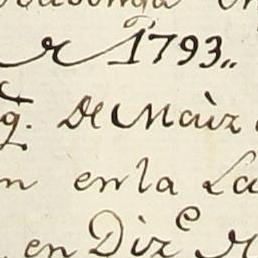 1793,,
q. de Maiz
n en la La
en Diz.e